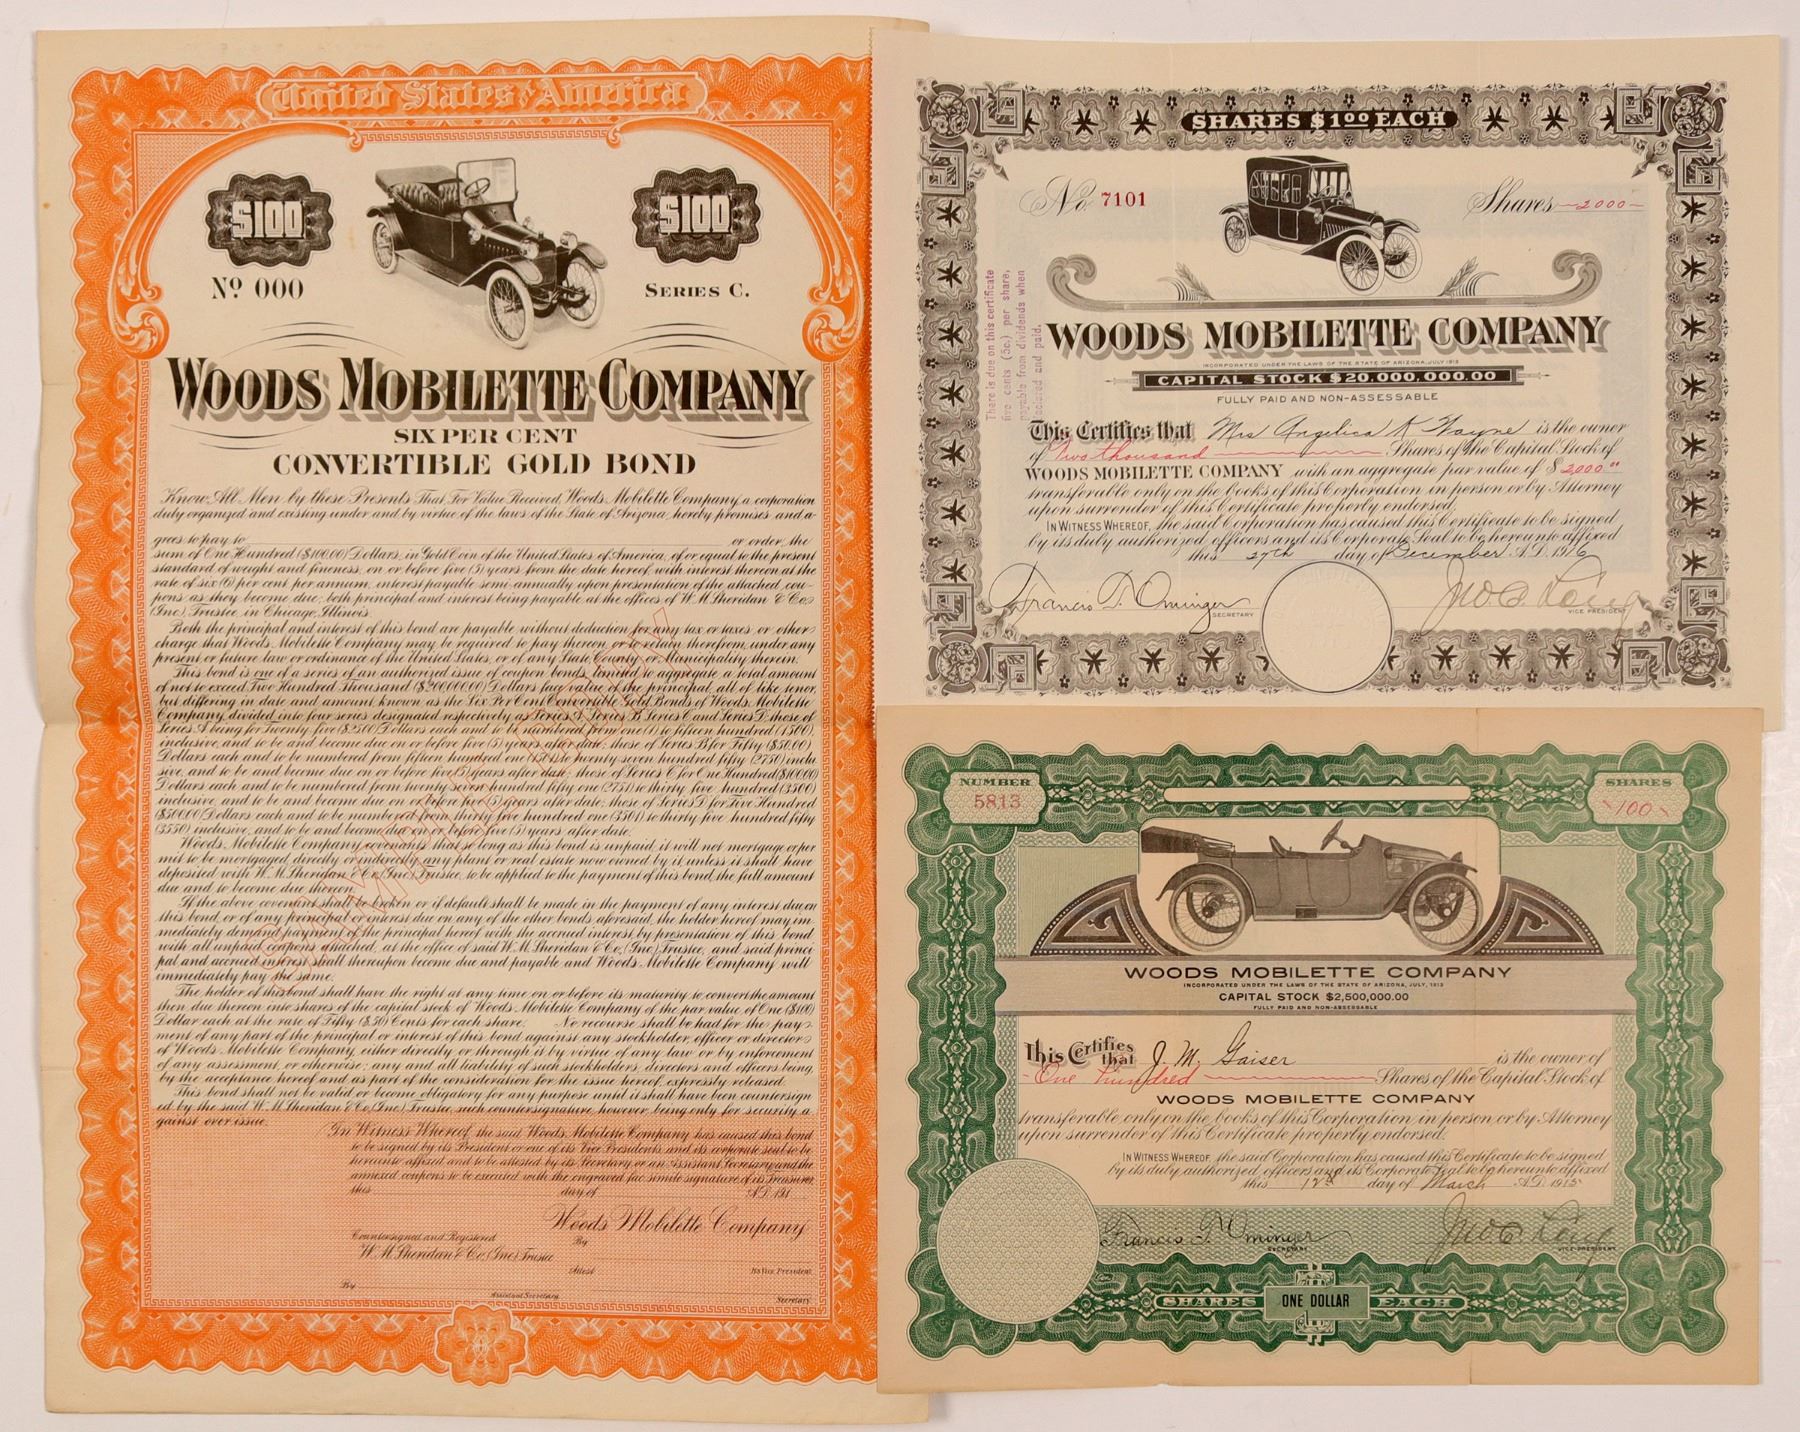 United States of America
$100
$100
No 000
SERIES C.
WOODS MOBILETTE COMPANY
SIX PER CENT
CONVERTIBLE GOLD BOND
Know All Men by these Presents That For Value Received, Woods Mobilette Company, a corporation
duly organized and existing under and by virtue of the laws of the State of Arizona, hereby promises and a-
grees to pay to or order, the
sum of One Hundred ($100.00) Dollars, in Gold Coin of the United States of America, of or equal to the present
standard of weight and fineness, on or before five (5) years from the date hereof, with interest thereon at the
rate of six (6) per cent per annum, interest payable semi-annually upon presentation of the attached cou-
pons as they become due, both principal and interest being payable at the offices of W. M. Sheridan & Co.
(Inc.) Trustee, in Chicago, Illinois.
Both the principal and interest of this bond are payable without deduction for any tax or taxes or other
charge that Woods Mobilette Company may be required to pay thereon or retain therefrom, under any
present or future law or ordinance of the United States, or of any State, County or Municipality therein.
This bond is one of a series of an authorized issue of coupon bonds, limited to aggregate a total amount
of not to exceed Two Hundred Thousand Dollars face value of the principal, all of like tenor,
but differing in date and amount, known as the Six Per Cent Convertible Gold Bonds of Woods Mobilette
Company, divided into four series designated respectively as Series A, Series B, Series C and Series D; those of
Series A being for Twenty-five ($25.00) Dollars each and to be numbered from one (1) to fifteen hundred (1500),
inclusive, and to be and become due on or before five (5) years after date; those of Series B for Fifty ($50.00)
Dollars each and to be numbered from fifteen hundred one (1501) to twenty seven hundred fifty (2750) inclu-
sive, and to be and become due on or before five (5) years after date; those of Series C for One Hundred ($100.00)
Dollars each and to be numbered from twenty seven hundred fifty one (2751) to thirty five hundred (3500)
inclusive, and to be and become due on or before five (5) years after date; those of Series D for Five Hundred
($500.00) Dollars each and to be numbered from thirty five hundred one (3501) to thirty five hundred fifty
(3550) inclusive, and to be and become due on or before five (5) years after date.
Woods Mobilette Company covenants that so long as this bond is unpaid, it will not mortgage or per-
mit to be mortgaged, directly or indirectly, any plant or real estate now owned by it, unless it shall have
deposited with W. M. Sheridan & Co. (Inc.) Trustee, to be applied to the payment of this bond, the full amount
due and to become due thereon.
If the above covenant shall be broken or if default shall be made in the payment of any interest due on
this bond, or of any principal or interest due on any of the other bonds aforesaid, the holder hereof may im-
mediately demand payment of the principal hereof with the accrued interest by presentation of this bond
with all unpaid coupons attached, at the office of said W. M. Sheridan & Co. (Inc.) Trustee, and said princi-
pal and accrued interest shall thereupon become due and payable and Woods Mobilette Company will
immediately pay the same.
The holder of this bond shall have the right at any time on or before its maturity to convert the amount
then due thereon into shares of the capital stock of Woods Mobilette Company of the par value of One ($1.00)
Dollar each at the rate of Fifty ($.50) Cents for each share. No recourse shall be had for the pay-
ment of any part of the principal or interest of this bond against any stockholder, officer or director
of Woods Mobilette Company, either directly or through it by virtue of any law or by enforcement
of any assessment, or otherwise; any and all liability of such stockholders, directors and officers being,
by the acceptance hereof and as part of the consideration for the issue hereof, expressly released.
This bond shall not be valid or become obligatory for any purpose until it shall have been countersign-
ed by the said W. M. Sheridan & Co. (Inc.) Trustee, such countersignature, however, being only for security a-
gainst over issue.
In Witness Whereof, the said Woods Mobilette Company has caused this bond
to be signed by its President or one of its Vice Presidents, and its corporate seal to be
hereunto affixed and to be attested by its Secretary or an Assistant Secretary, and the
annexed coupons to be executed with the engraved fac simile signature of its Treasurer,
this day of A.D. 191
Woods Mobilette Company
Countersigned and Registered
By
W. M. Sheridan & Co. (Inc.) Trustee
Attest
Its Vice President
By
Assistant Secretary
Secretary
SHARES $1.00 EACH
No. 7101
Shares 2000
There is due on this certificate
five cents (5c.) per share,
payable from dividends when
declared and paid.
WOODS MOBILETTE COMPANY
INCORPORATED UNDER THE LAWS OF THE STATE OF ARIZONA, JULY 1913
CAPITAL STOCK $20,000,000.00
FULLY PAID AND NON-ASSESSABLE
This Certifies that Mrs Angelica K Wayne is the owner
of Two thousand Shares of the Capital Stock of
WOODS MOBILETTE COMPANY with an aggregate par value of $2,000.00
transferable only on the books of this Corporation in person or by Attorney
upon surrender of this Certificate properly endorsed.
IN WITNESS WHEREOF, the said Corporation has caused this Certificate to be signed
by its duly authorized officers and its Corporate Seal to be hereunto affixed
this 27th day of December A.D. 1916
Francis T. Omringer
SECRETARY
VICE PRESIDENT
NUMBER
5813
SHARES
100
WOODS MOBILETTE COMPANY
INCORPORATED UNDER THE LAWS OF THE STATE OF ARIZONA, JULY, 1913
CAPITAL STOCK $2,500,000.00
FULLY PAID AND NON-ASSESSABLE
This Certifies that J. M. Gaiser is the owner of
One hundred Shares of the Capital Stock of
WOODS MOBILETTE COMPANY
transferable only on the books of this Corporation in person or by Attorney
upon surrender of this Certificate properly endorsed.
IN WITNESS WHEREOF, the said Corporation has caused this Certificate to be signed
by its duly authorized officers and its Corporate Seal to be hereunto affixed
this 12th day of March A.D. 1915
Francis T. Omringer
SECRETARY
VICE-PRESIDENT
SHARES ONE DOLLAR EACH